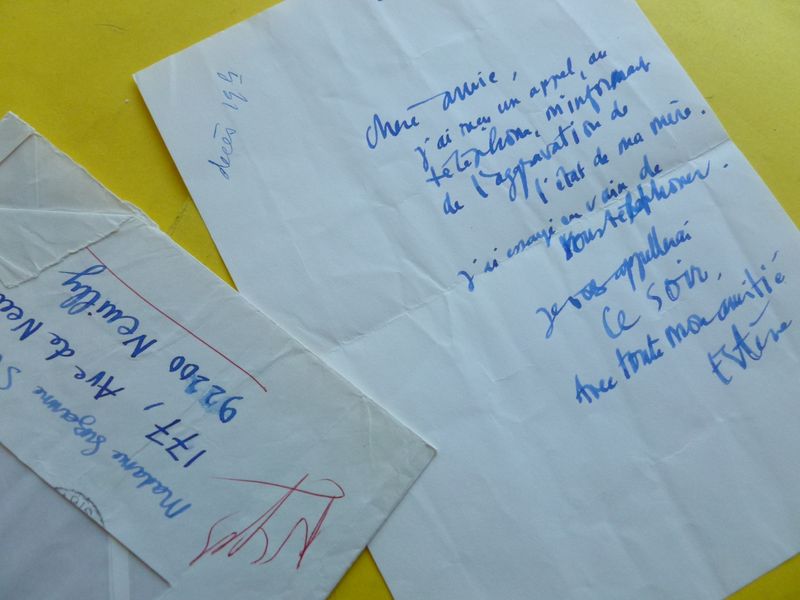 décès 19
Chère amie,
j'ai reçu un appel, au
téléphone, m'informant
de l'aggravation de
l'état de ma mère.
j'ai essayé en vain de
vous téléphoner.
Je vous appellerai
ce soir.
Avec toute mon amitié
Estève
Madame Suzanne
177, Ave de
92200 Neuilly